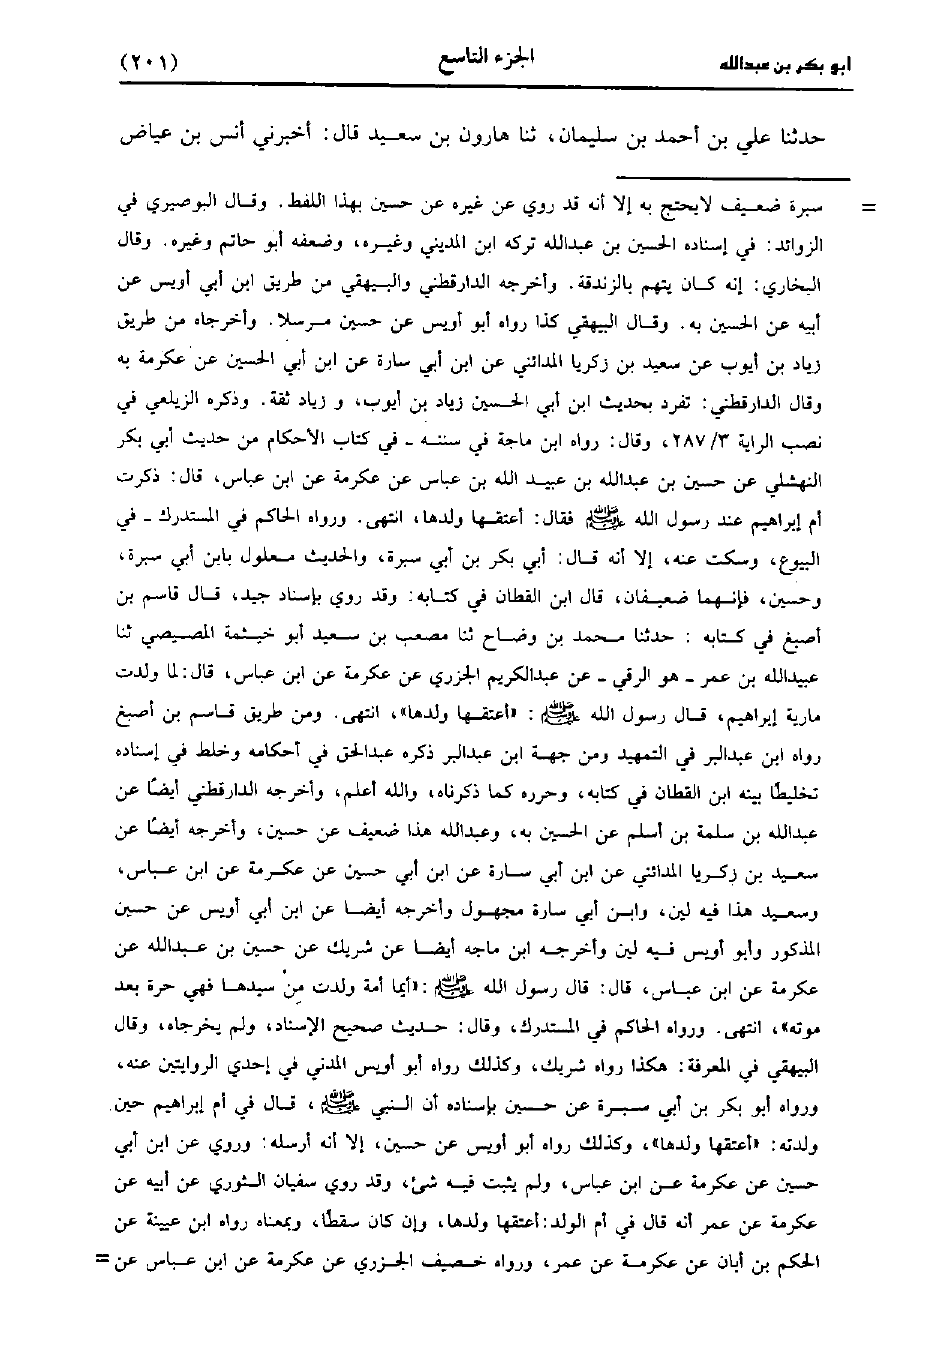 ابو بكر بن عبدالله
الجزء التاسع
(٢٠١)
حدثنا علي بن أحمد بن سليمان، ثنا هارون بن سعيد قال: أخبرني أنس بن عياض
= سبرة ضعيف لايحتج به إلا أنه قد روي عن غيره عن حسين بهذا اللفظ. وقال البوصيري في
الزوائد: في إسناده الحسين بن عبدالله تركه ابن المديني وغيره، وضعفه أبو حاتم وغيره. وقال
البخاري: إنه كان يتهم بالزندقة. وأخرجه الدارقطني والبيهقي من طريق ابن أبي أويس عن
أبيه عن الحسين به. وقال البيهقي كذا رواه أبو أويس عن حسين مرسلا. وأخرجاه من طريق
زياد بن أيوب عن سعيد بن زكريا المدائني عن ابن أبي سارة عن ابن أبي الحسين عن عكرمة به
وقال الدارقطني: تفرد بحديث ابن أبي الحسين زياد بن أيوب، و زياد ثقة. وذكره الزيلعي في
نصب الراية ٣/ ٢٨٧، وقال: رواه ابن ماجة في سننه ـ في كتاب الأحكام من حديث أبي بكر
النهشلي عن حسين بن عبدالله بن عبيد الله بن عباس عن عكرمة عن ابن عباس، قال: ذكرت
أم إبراهيم عند رسول الله ﷺ فقال: أعتقها ولدها، انتهى. ورواه الحاكم في المستدرك ـ في
البيوع، وسكت عنه، إلا أنه قال: أبي بكر بن أبي سبرة، والحديث معلول بابن أبي سبرة،
وحسين، فإنهما ضعيفان، قال ابن القطان في كتابه: وقد روي بإسناد جيد، قال قاسم بن
أصبغ في كتابه : حدثنا محمد بن وضاح ثنا مصعب بن سعيد أبو خيثمة المصيصي ثنا
عبيدالله بن عمر ـ هو الرقي ـ عن عبدالكريم الجزري عن عكرمة عن ابن عباس، قال: لما ولدت
مارية إبراهيم، قال رسول الله ﷺ : «أعتقها ولدها»، انتهى. ومن طريق قاسم بن أصبغ
رواه ابن عبدالبر في التمهيد ومن جهة ابن عبدالبر ذكره عبدالحق في أحكامه وخلط في إسناده
تخليطًا بينه ابن القطان في كتابه، وحرره كما ذكرناه، والله أعلم، وأخرجه الدارقطني أيضًا عن
عبدالله بن سلمة بن أسلم عن الحسين به، وعبدالله هذا ضعيف عن حسين، وأخرجه أيضًا عن
سعيد بن زكريا المدائني عن ابن أبي سارة عن ابن أبي حسين عن عكرمة عن ابن عباس،
وسعيد هذا فيه لين، وابن أبي سارة مجهول وأخرجه أيضا عن ابن أبي أويس عن حسين
المذكور وأبو أويس فيه لين وأخرجه ابن ماجه أيضا عن شريك عن حسين بن عبدالله عن
عكرمة عن ابن عباس، قال: قال رسول الله ﷺ :«أيما أمة ولدت من سيدها فهي حرة بعد
موته»، انتهى. ورواه الحاكم في المستدرك، وقال: حديث صحيح الإسناد، ولم يخرجاه، وقال
البيهقي في المعرفة: هكذا رواه شريك، وكذلك رواه أبو أويس المدني في إحدي الروايتين عنه،
ورواه أبو بكر بن أبي سبرة عن حسين بإسناده أن النبي ﷺ ، قال في أم إبراهيم حين
ولدته: «أعتقها ولدها»، وكذلك رواه أبو أويس عن حسين، إلا أنه أرسله: وروي عن ابن أبي
حسين عن عكرمة عن ابن عباس، ولم يثبت فيه شئ، وقد روي سفيان الثوري عن أبيه عن
عكرمة عن عمر أنه قال في أم الولد:أعتقها ولدها، وإن كان سقطًا، وبمعناه رواه ابن عيينة عن
الحكم بن أبان عن عكرمة عن عمر، ورواه خصيف الجزري عن عكرمة عن ابن عباس عن =